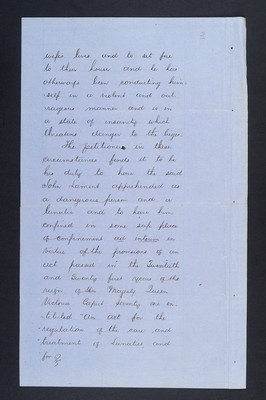 2
wife's lives and to set fire
to their house and to have
otherways been conducting him-
self in a violent and out-
rageous manner and is in
a state of insanity which
threatens danger to the lieges.
The petitioner in these
circumstances finds it to be
his duty to have the said
John Lamont apprehended as
a dangerous person and a
lunatic and to have him
confined in some safe place
of confinement ad interim in
virtue of the provisions of an
act passed in the Twentieth
and Twenty first years of the
reign of Her Majesty Queen
Victoria Capit Seventy as en-
-titled "An Act for the
"regulation of the care and
"treatment of Lunatics, and
for